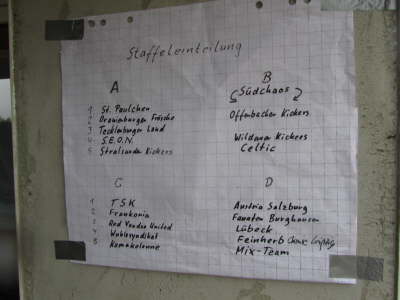 Staffeleinteilung
A
1 St. Paulchen
2 Oranienburger Frösche
3 Tecklenburger Land
4 S.E.O.N.
5 Stralsunder Kickers
B
Südchaos
Offenbacher Kickers
Wildauer Kickers
Celtic
C
1 TSK
2 Frankonia
3 Red Vendra United
4 Wahlesyndikat
5 Kamakolonne
D
Austria Salzburg
Fanaten Burghausen
Lübeck
Feinherb Chemie Leipzig
Mix-Team